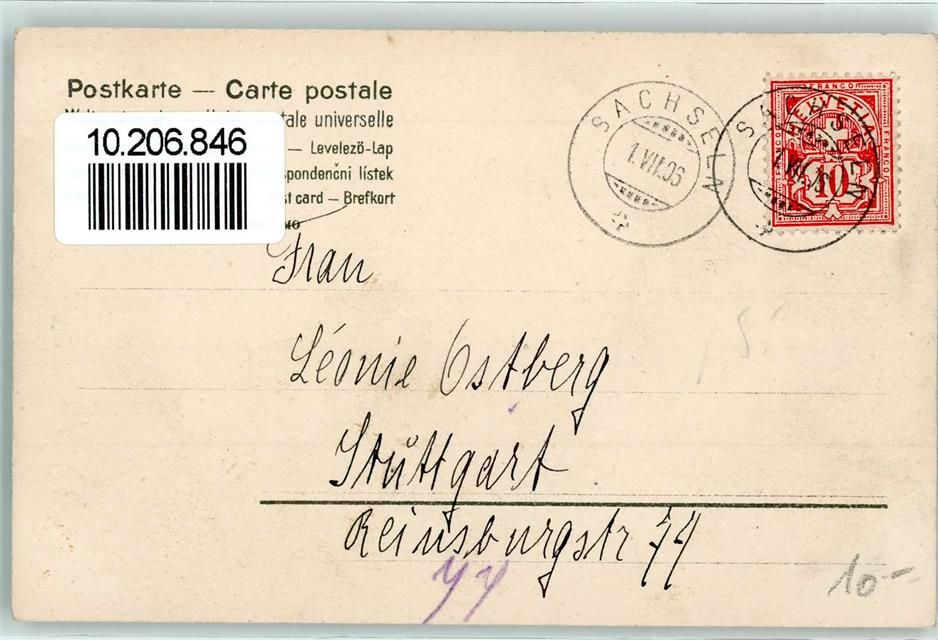 Postkarte — Carte postale
postale universelle
— Levelező-Lap
spondenční lístek
st card — Brefkort
10.206.846
SACHSELN
1.VII.06
SACHSELN
FRANCO
HELVETIA
FRANCO
10
Frau
Léonie Ostberg
Stuttgart
Reinsburgstr
10-